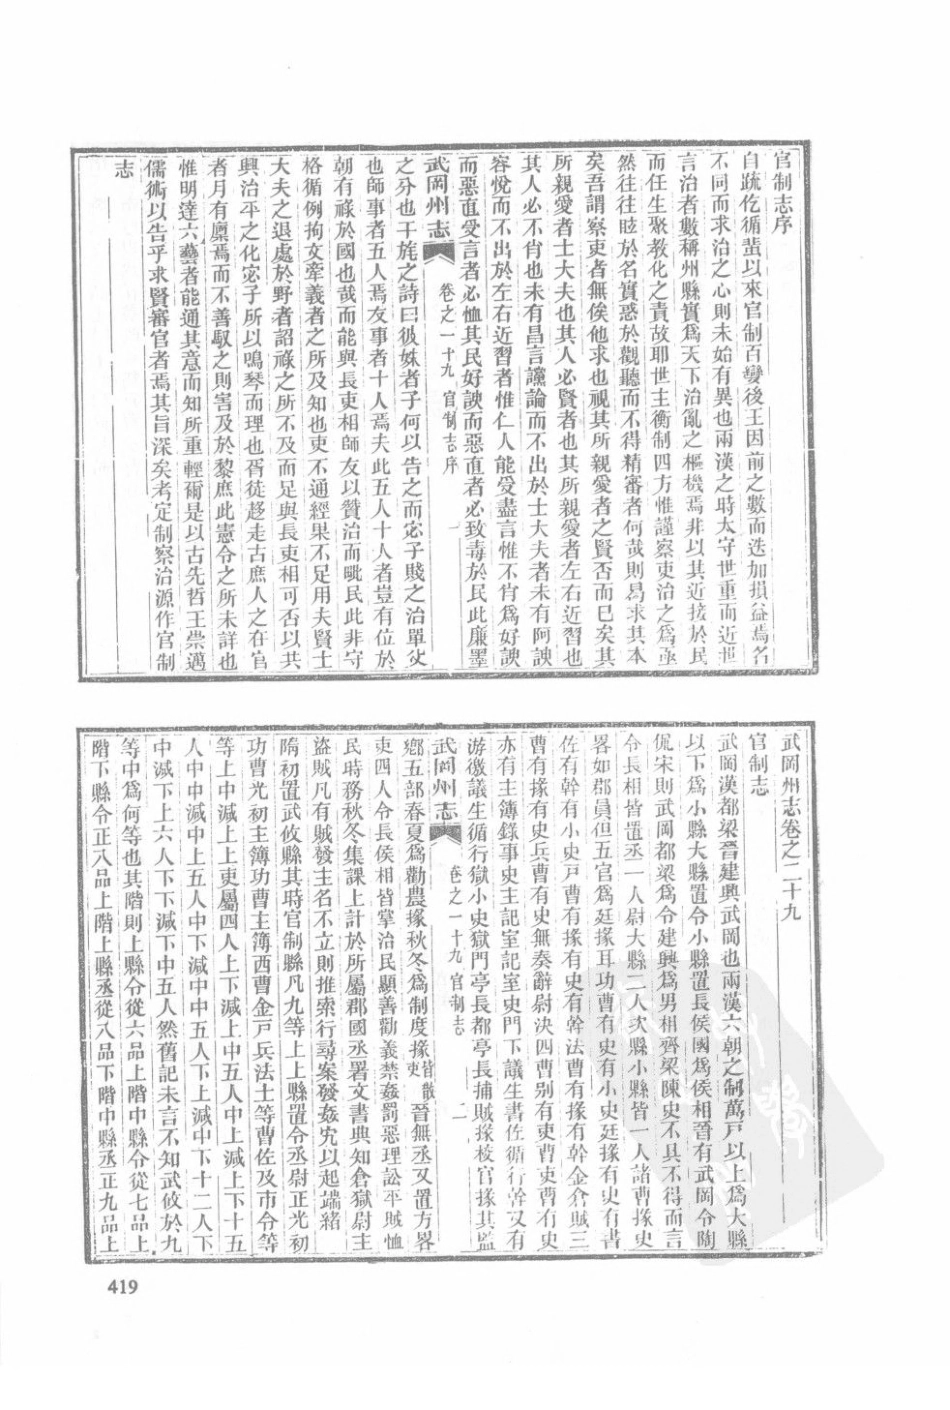 官制志序
自疏仡循蜚以來官制百變後王因前之數而迭加損益焉名
不同而求治之心則未始有異也兩漢之時太守世重而近世
言治者數稱州縣實爲天下治亂之樞機焉非以其近接於民
而任生聚教化之責故耶世主衡制四方惟謹察吏治之爲亟
然往往眩於名實惑於觀聽而不得精審者何哉則曷求其本
矣吾謂察吏者無俟他求也視其所親愛者之賢否而已矣其
所親愛者士大夫也其人必賢者也其所親愛者左右近習也
其人必不肖也未有昌言讜論而不出於士大夫者未有阿諛
容悅而不出於左右近習者惟仁人能受盡言惟不肖爲好諛
而惡直受言者必恤其民好諛而惡直者必致毒於民此廉墨
武岡州志
卷之二十九 官制志序
一
之分也干旄之詩曰彼姝者子何以告之而宓子賤之治單父
也師事者五人焉友事者十人焉夫此五人十人者豈有位於
朝有祿於國也哉而能與長吏相師友以贊治而毗民此非守
格循例拘文牽義者之所及知也吏不通經果不足用夫賢士
大夫之退處於野者詔祿之所不及而足與長吏相可否以共
興治平之化宓子所以鳴琴而理也胥徒趍走古庶人之在官
者月有廩焉而不善馭之則害及於黎庶此憲令之所未詳也
惟明達六藝者能通其意而知所重輕爾是以古先哲王崇邁
儒術以告乎求賢審官者焉其旨深矣考定制察治源作官制
志
武岡州志卷之二十九
官制志
武岡漢都梁晉建興武岡也兩漢六朝之制萬戸以上爲大縣
以下爲小縣大縣置令小縣置長侯國爲侯相晉有武岡令陶
侃宋則武岡都梁爲令建興爲男相齊梁陳史不具不得而言
令長相皆置丞一人尉大縣二人次縣小縣皆一人諸曹掾史
畧如郡員但五官爲廷掾耳功曹有史有小史廷掾有史有書
佐有幹有小史戸曹有掾有史有幹法曹有掾有幹金倉賊三
曹有掾有史兵曹有史無奏辭尉決四曹别有吏曹吏曹有史
亦有主簿錄事史主記室記室史門下議生書佐循行幹又有
游徼議生循行獄小史獄門亭長都亭長捕賊掾校官掾其監
武岡州志
卷之二十九 官制志
二
鄉五部春夏爲勸農掾秋冬爲制度掾皆散吏晉無丞又置方畧
吏四人令長侯相皆掌治民顯善勸義禁姦罰惡理訟平賊恤
民時務秋冬集課上計於所屬郡國丞署文書典知倉獄尉主
盜賊凡有賊發主名不立則推索行尋案發姦宄以起端緒
隋初置武攸縣其時官制縣凡九等上上縣置令丞尉正光初
功曹光初主簿功曹主簿西曹金戸兵法士等曹佐及市令等
等上中減上上吏屬四人上下減上中五人中上減上下十五
人中中減中上五人中下減中中五人下上減中下十二人下
中減下上六人下下減下中五人然舊記未言不知武攸於九
等中爲何等也其階則上縣令從六品上階中縣令從七品上
階下縣令正八品上階上縣丞從八品下階中縣丞正九品上
419